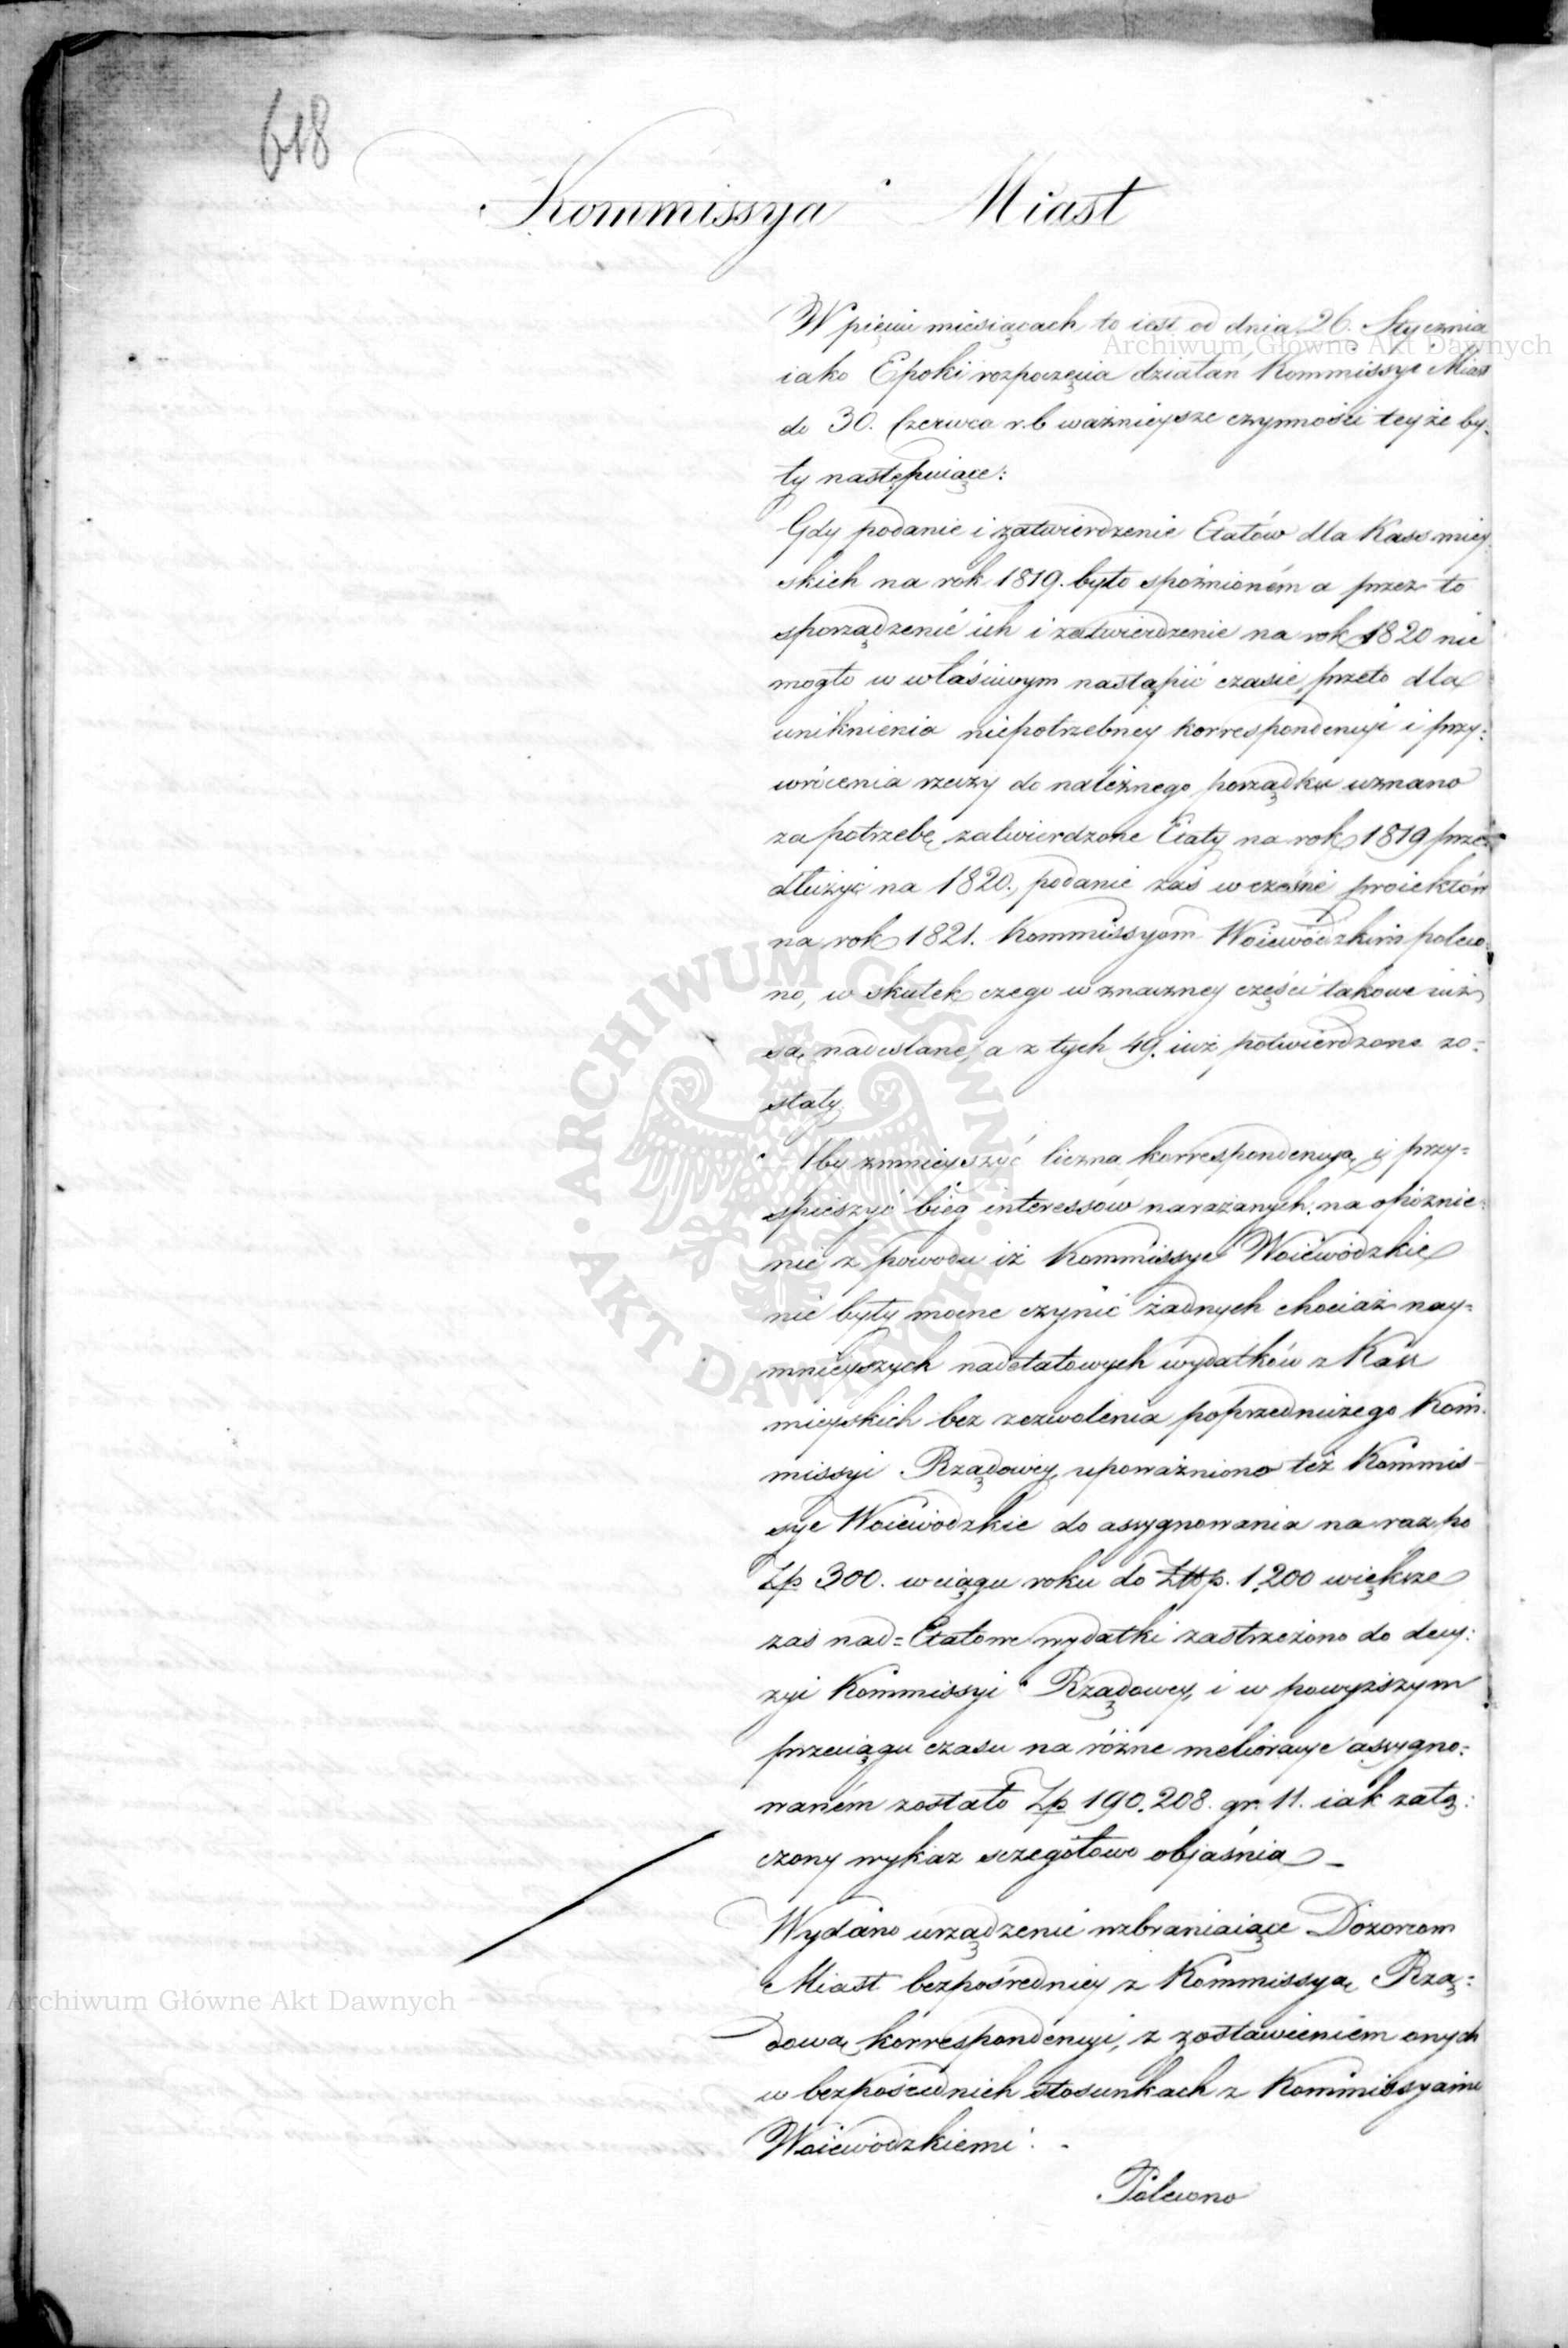 618
Kommissya Miast
W pięciu miesiącach to iest od dnia 26. Stycznia
iako Epoki rozpoczęcia działań Kommissyi Miast
do 30. Czerwca r.b ważnieysze czynności teyże by-
ły następuiące:
Gdy podanie i zatwierdzenie Etatów dla Kass miey-
skich na rok 1819. było spoźnioném a przez to
sporządzenie ich i zatwierdzenie na rok 1820 nie
mogło w właściwym nastąpić czasie, przeto dla
uniknienia niepotrzebney korrespondencyi i przy-
wrócenia rzeczy do należnego porządku uznano
za potrzebę zatwierdzone Etaty na rok 1819 prze-
dłużyć na 1820., podanie zaś wcześne proiektów
na rok 1821. Kommissyom Woiewódzkim poleco-
no, w skutek czego w znaczney części takowe iuż
są nadesłane, a z tych 49. iuż potwierdzone zo-
stały.
Aby zmnieyszyć liczną korrespondencyą i przy-
spieszyć bieg interessów narażanych na opóźnie-
nie z powodu iż Kommissye Woiewódzkie
nie były mocne czynić żadnych chociaż nay-
mnieyszych nadetatowych wydatków z Kass
mieyskich bez zezwolenia poprzedniczego Kom-
missyi Rządowey, upoważniono też Kommis-
sye Woiewódzkie do assygnowania na raz po
Zp 300. w ciągu roku do Złtp. 1,200 większe
zas nad=Etatowe wydatki zastrzeżono do decy-
zyi Kommissyi Rządowey, i w powyższym
przeciągu czasu na różne melioracye assygno-
waném zostało Zp 190,208. gr. 11. iak załą-
czony wykaz szczegółowo objaśnia –
Wydano urządzenie wzbraniaiące Dozorcom
Miast bezpośredniey z Kommissyą Rzą-
dową korrespondencyi, z zostawieniem onych
w bezpośrednich stosunkach z Kommissyami
Woiewódzkiemi. -
Polecono
Archiwum Główne Akt Dawnych
Archiwum Główne Akt Dawnych
· ARCHIWUM GŁÓWNE · AKT DAWNYCH